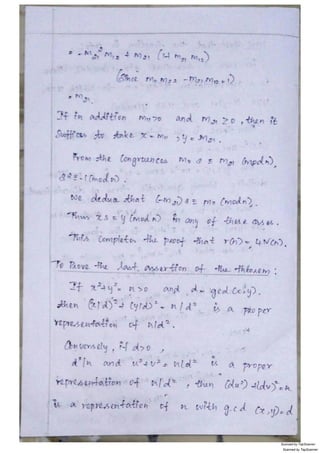 = - m₂₁² m₁₂ + m₂₁ (1+ m₂₁ m₁₂)
(Since m₁₁ m₂₂ = - m₂₁ m₁₂ + 1)
= m₂₁.
If in addition m₁₁ > 0 and m₂₁ ≥ 0, then it
Suffices to take x = m₁₁, y = m₂₁.
From the Congruences m₁₁ s ≡ m₂₁ (mod n),
s² ≡ -1 (mod n).
We deduce that (-m₂₁) s ≡ m₁₁ (mod n).
Thus x s ≡ y (mod n) in any of these cases.
This completes the proof that r(n) = 4N(n).
To Prove the last assertion of the theorem:
If x²+y² = n > 0 and d = gcd (x, y).
then (x/d)² + (y/d)² = n/d² is a proper
representation of n/d².
Conversely, if d > 0,
d²|n and u²+v² = n/d² is a proper
representation of n/d², then (du)² + (dv)² = n
is a representation of n with g.c.d (x, y) = d
Scanned by TapScanner
Scanned by TapScanner